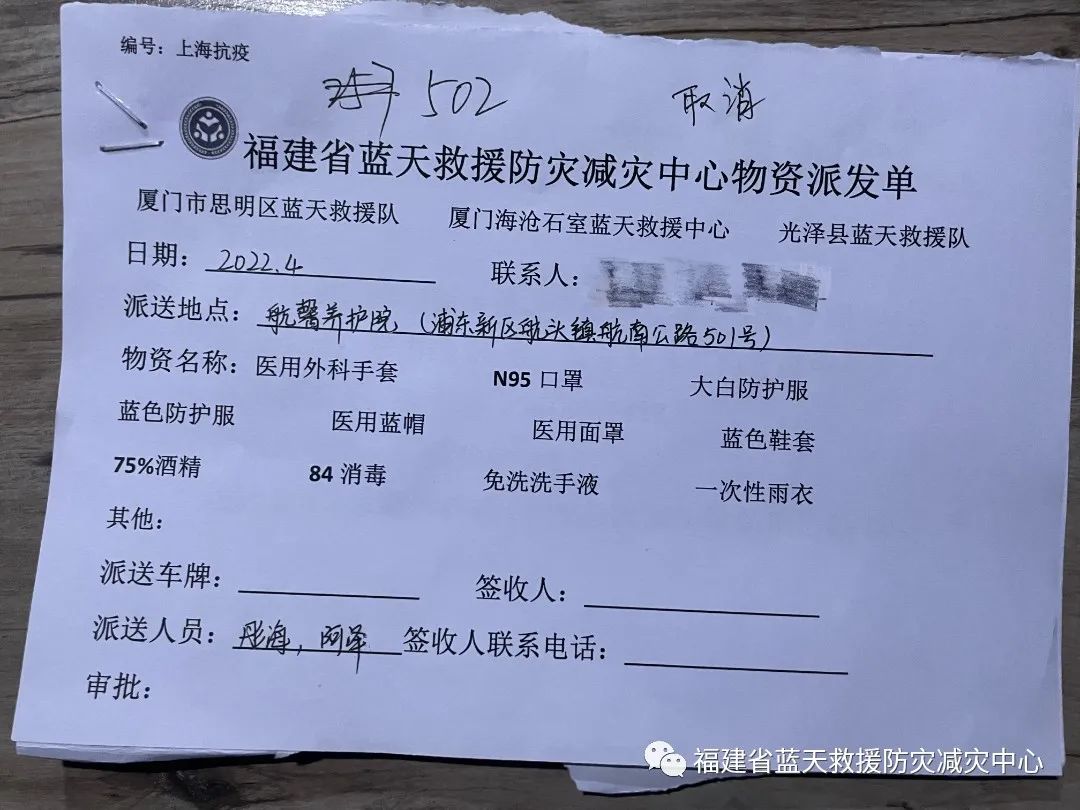 编号：上海抗疫
502 取消
福建省蓝天救援防灾减灾中心物资派发单
厦门市思明区蓝天救援队 厦门海沧石室蓝天救援中心 光泽县蓝天救援队
日期：2022.4 联系人：
派送地点：航馨养护院，（浦东新区航头镇航南公路501号）
物资名称：医用外科手套 N95 口罩 大白防护服
蓝色防护服 医用蓝帽 医用面罩 蓝色鞋套
75%酒精 84 消毒 免洗洗手液 一次性雨衣
其他：
派送车牌： 签收人：
派送人员：彤海，阿泽 签收人联系电话：
审批：
福建省蓝天救援防灾减灾中心